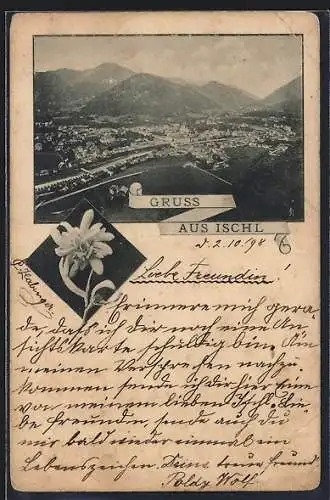 GRUSS
AUS ISCHL
d. 2.10.98
Liebe Freundin!
Erinnere mich gera-
de, daß ich dir noch eine An-
sichtskarte schuldig bin. Um
meinem Versprechen nachzu-
kommen sende ich dir hier eine
von meinem lieben Ischl. Lie-
be Freundin, sende auch du
mir bald wieder einmal ein
Lebenszeichen. Deine treue Freund
Poldy Wolf